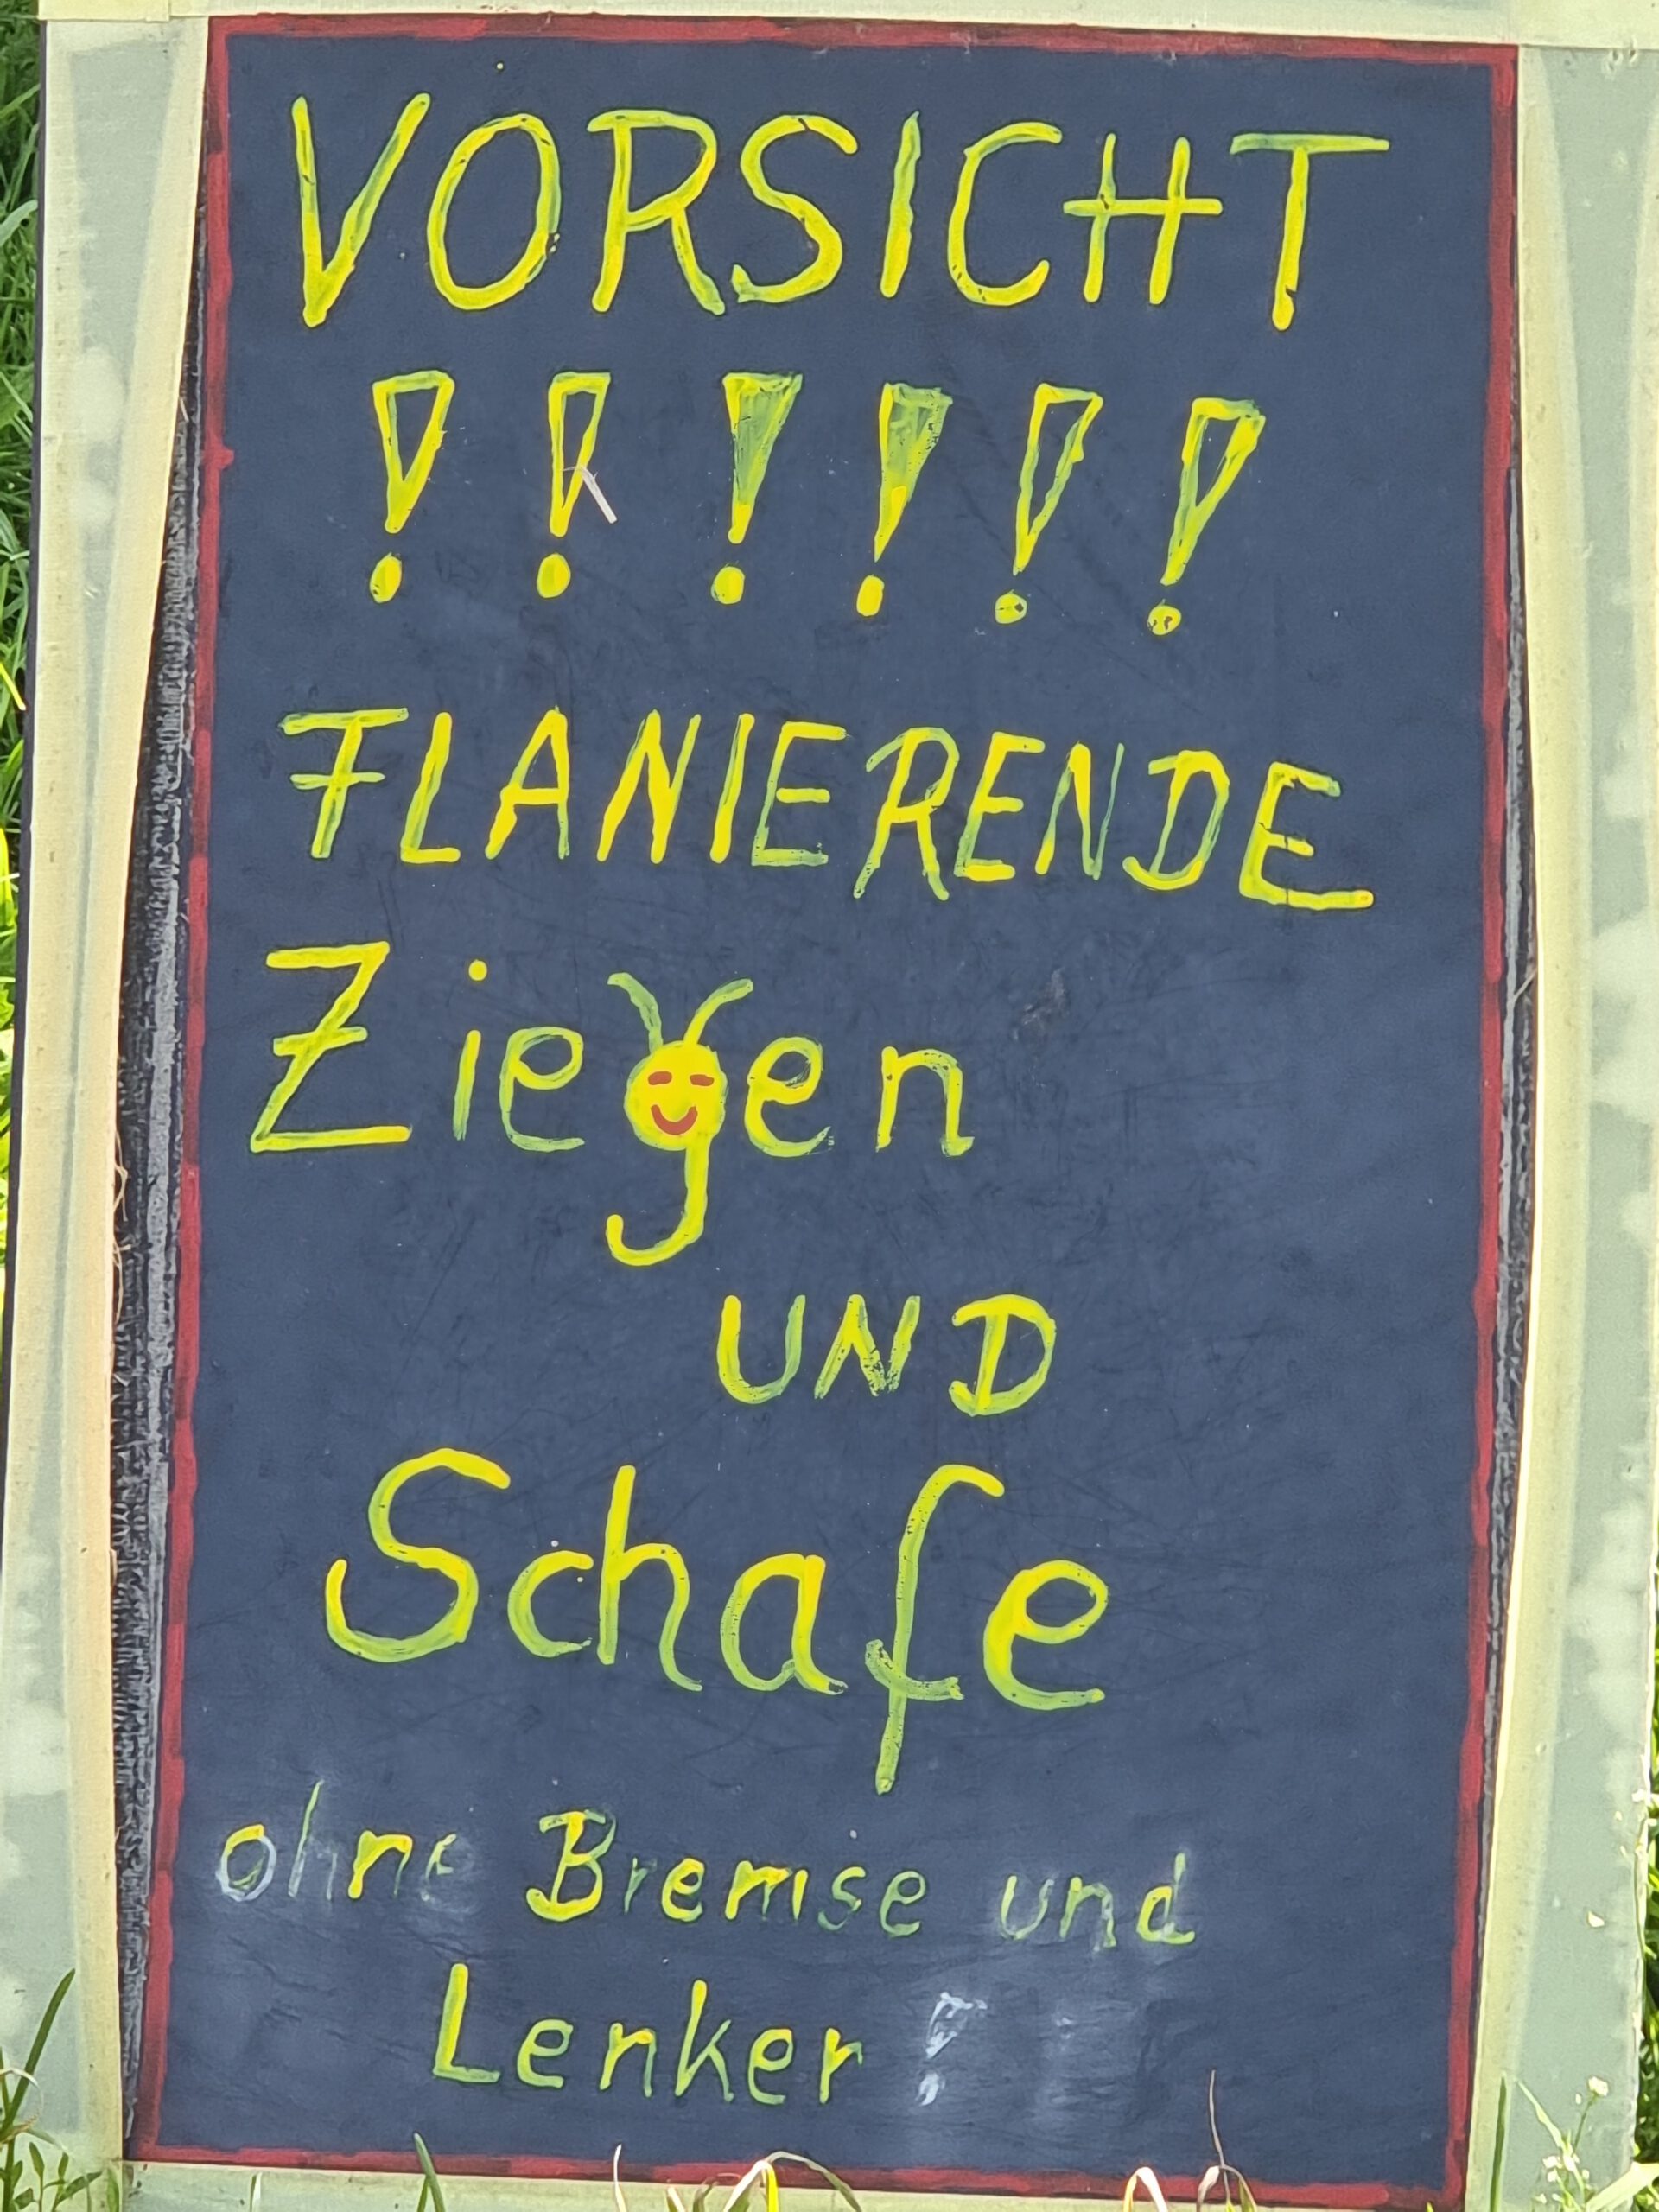 VORSICHT
! ! ! ! ! !
FLANIERENDE
Ziegen
UND
Schafe
ohne Bremse und
Lenker !